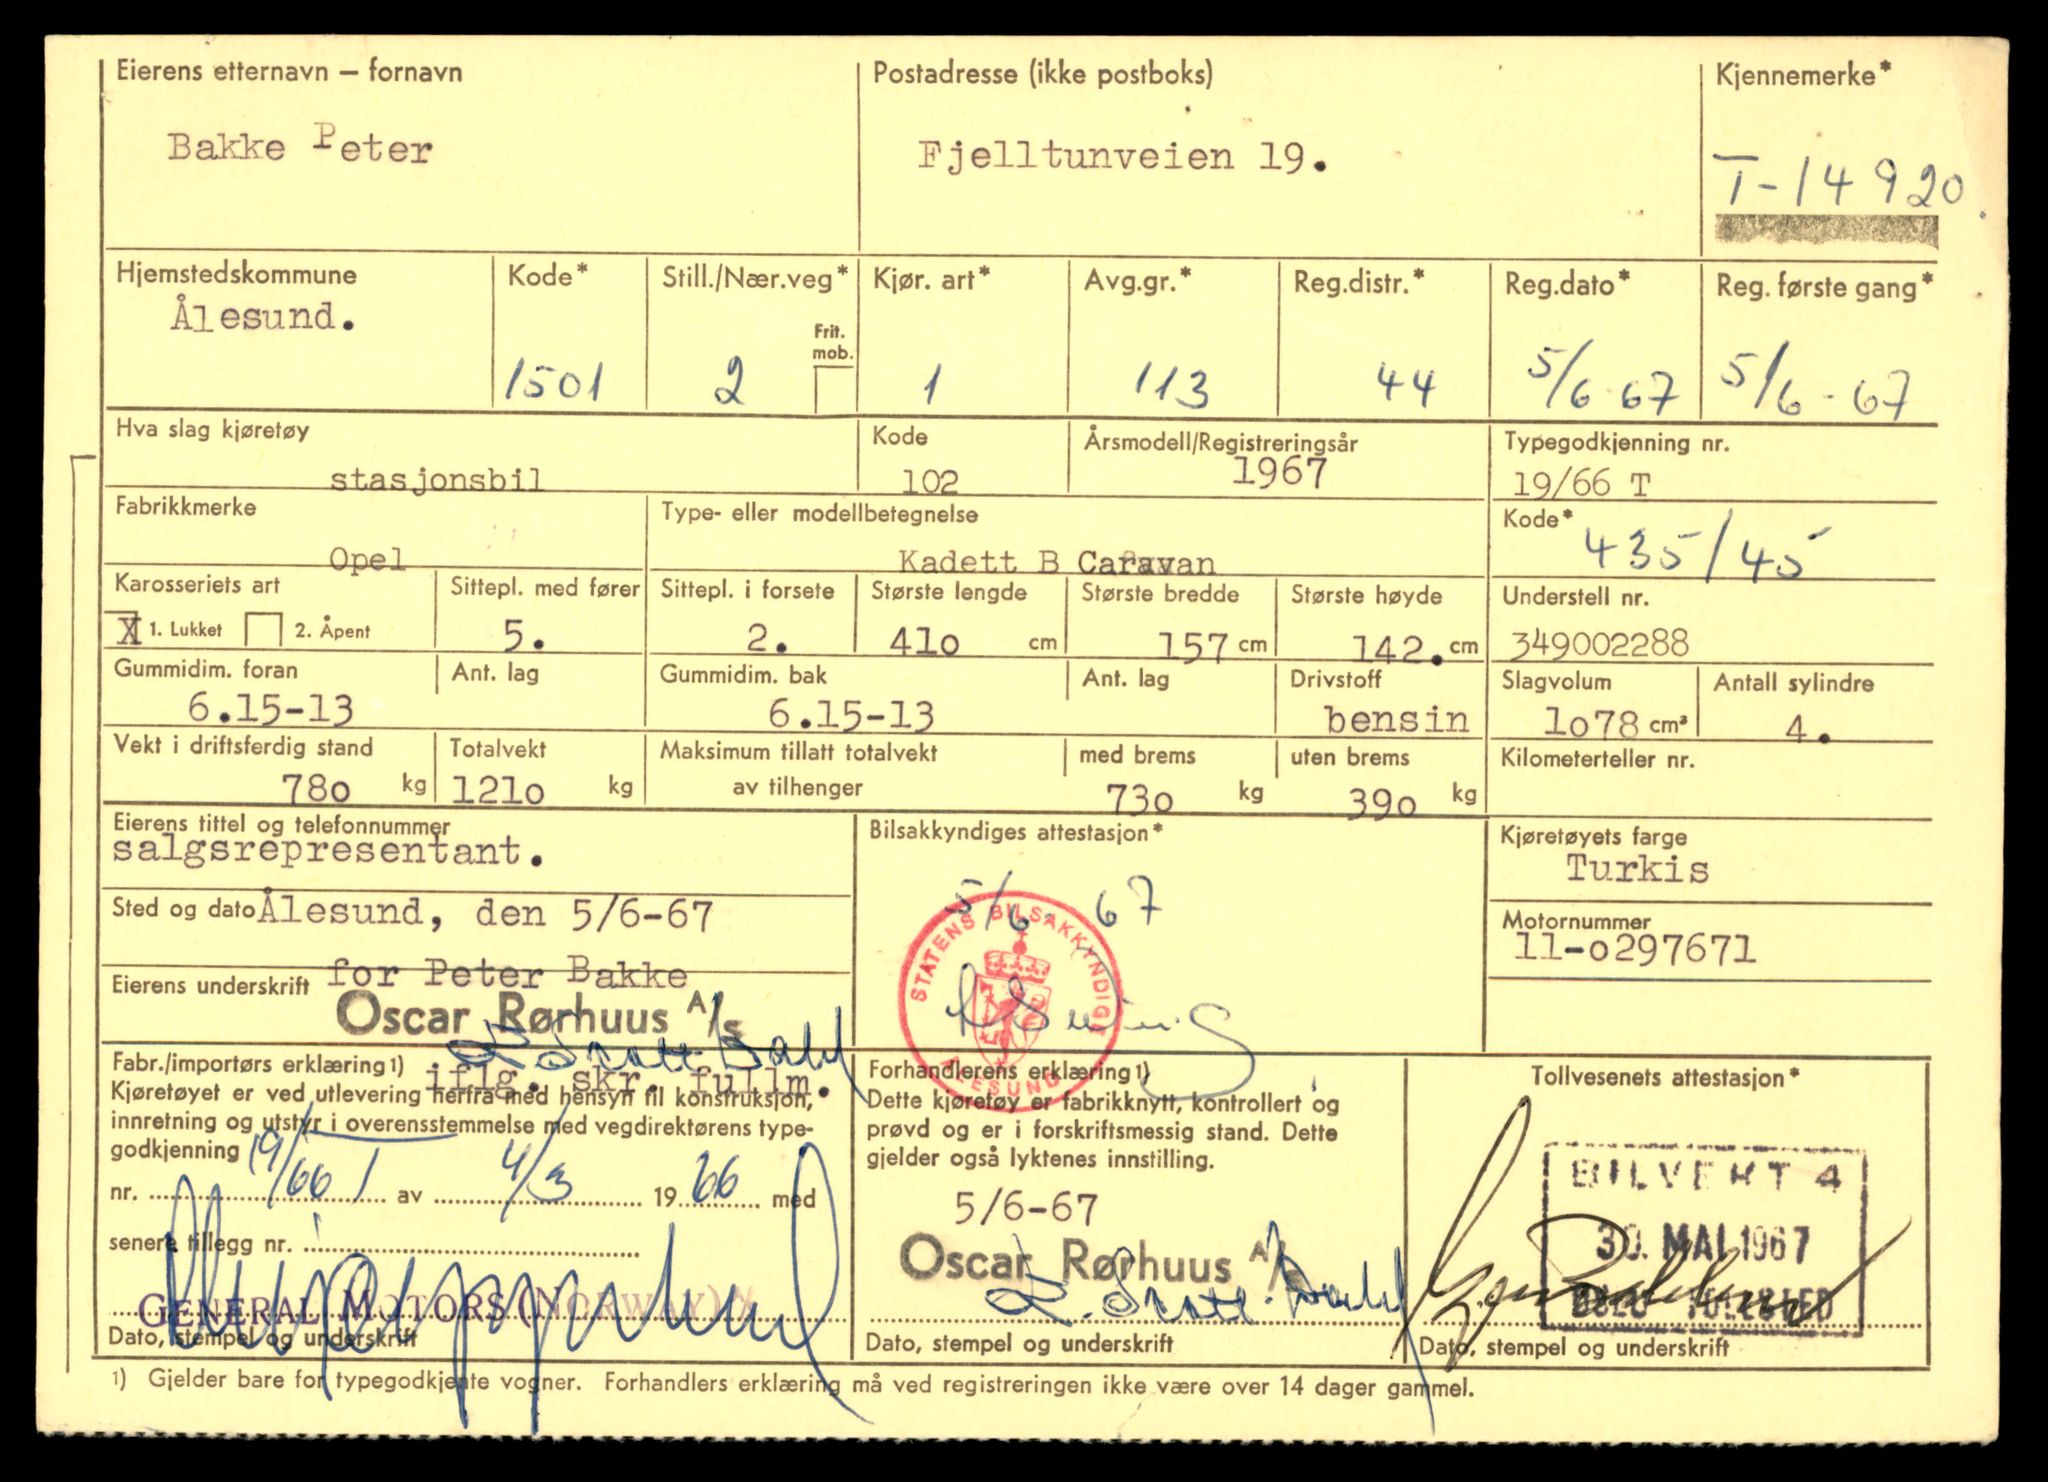 Eierens etternavn – fornavn
Bakke Peter
Postadresse (ikke postboks)
Fjelltunveien 19.
Kjennemerke*
T-14920
Hjemstedskommune
Ålesund.
Kode*
1501
Still./Nær.veg*
2
Frit.
mob.
Kjør. art*
1
Avg.gr.*
113
Reg.distr.*
44
Reg.dato*
5/6-67
Reg. første gang*
5/6-67
Hva slag kjøretøy
stasjonsbil
Kode
102
Årsmodell/Registreringsår
1967
Typegodkjenning nr.
19/66 T
Fabrikkmerke
Opel
Type- eller modellbetegnelse
Kadett B Caravan
Kode*
435/45
Karosseriets art
X 1. Lukket 2. Åpent
Sittepl. med fører
5.
Sittepl. i forsete
2.
Største lengde
410 cm
Største bredde
157 cm
Største høyde
142. cm
Understell nr.
349002288
Gummidim. foran
6.15-13
Ant. lag
Gummidim. bak
6.15-13
Ant. lag
Drivstoff
bensin
Slagvolum
1o78 cm³
Antall sylindre
4.
Vekt i driftsferdig stand
78o kg
Totalvekt
121o kg
Maksimum tillatt totalvekt
av tilhenger
med brems
73o kg
uten brems
39o kg
Kilometerteller nr.
Eierens tittel og telefonnummer
salgsrepresentant.
Bilsakkyndiges attestasjon*
5/6 67
STATENS BILSAKKYNDIGE
ÅLESUND
Kjøretøyets farge
Turkis
Sted og dato Ålesund, den 5/6-67
Motornummer
11-o297671
for Peter Bakke
Eierens underskrift
Oscar Rørhuus A/S
iflg. skr. fullm.
Fabr./importørs erklæring 1)
Kjøretøyet er ved utlevering herfra med hensyn til konstruksjon,
innretning og utstyr i overensstemmelse med vegdirektørens type-
godkjenning
nr. 19/66 T av 4/3 1966 med
senere tillegg nr.
GENERAL MOTORS (NORWAY) A/S
Dato, stempel og underskrift
Forhandlerens erklæring 1)
Dette kjøretøy er fabrikknytt, kontrollert og
prøvd og er i forskriftsmessig stand. Dette
gjelder også lyktenes innstilling.
5/6-67
Oscar Rørhuus A/S
Dato, stempel og underskrift
Tollvesenets attestasjon*
BILVERT 4
30. MAI 1967
OSLO TOLLSTED
Dato, stempel og underskrift
1) Gjelder bare for typegodkjente vogner. Forhandlers erklæring må ved registreringen ikke være over 14 dager gammel.